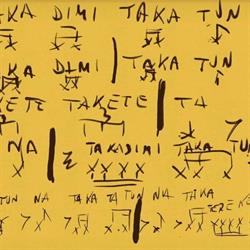 KA DIMI TAKA TUN
KA DIMI TAKA TUN
KETE TAKETE TA
NA TAKADIMI TAKA TUN
TUN NA TAKA TA TUN NA TAKA TEREKE